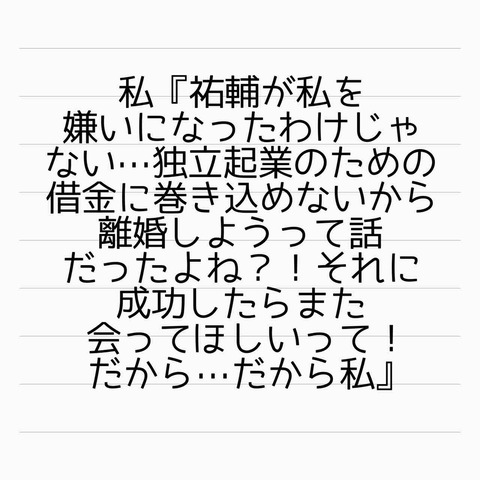 私『祐輔が私を
嫌いになったわけじゃ
ない…独立起業のための
借金に巻き込めないから
離婚しようって話
だったよね？！それに
成功したらまた
会ってほしいって！
だから…だから私』